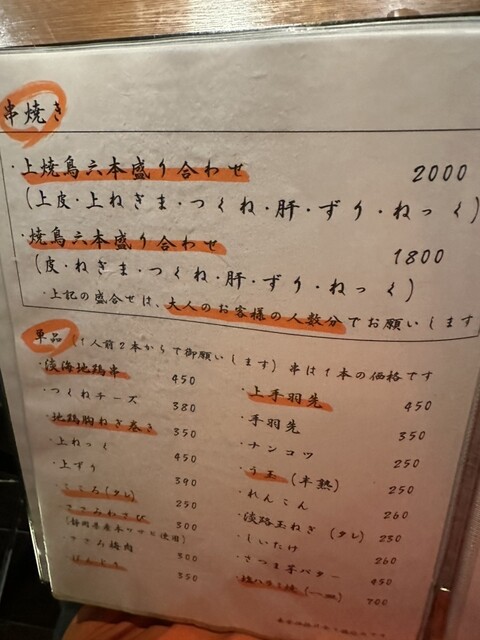 串焼き
・上焼鳥六本盛り合わせ 2000
(上皮・上ねぎま・つくね・肝・ずり・ねっく)
・焼鳥六本盛り合わせ 1800
(皮・ねぎま・つくね・肝・ずり・ねっく)
・上記の盛合せは、大人のお客様の人数分でお願いします
単品 (1人前2本からで御願いします) 串は1本の価格です
・淡海地鶏串 450
・つくねチーズ 380
・地鶏胸ねぎ巻き 350
・上ねっく 450
・上ずり 390
・こころ(タレ) 250
・ささみわさび 300
(静岡県産本ワサビ使用)
・ささみ梅肉 300
・ぼんじり 350
・上手羽先 450
・手羽先 350
・ナンコツ 250
・う玉(半熟) 250
・れんこん 260
・淡路玉ねぎ(タレ) 250
・しいたけ 260
・さつま芋バター 450
・塩ハラミ焼(一皿) 700